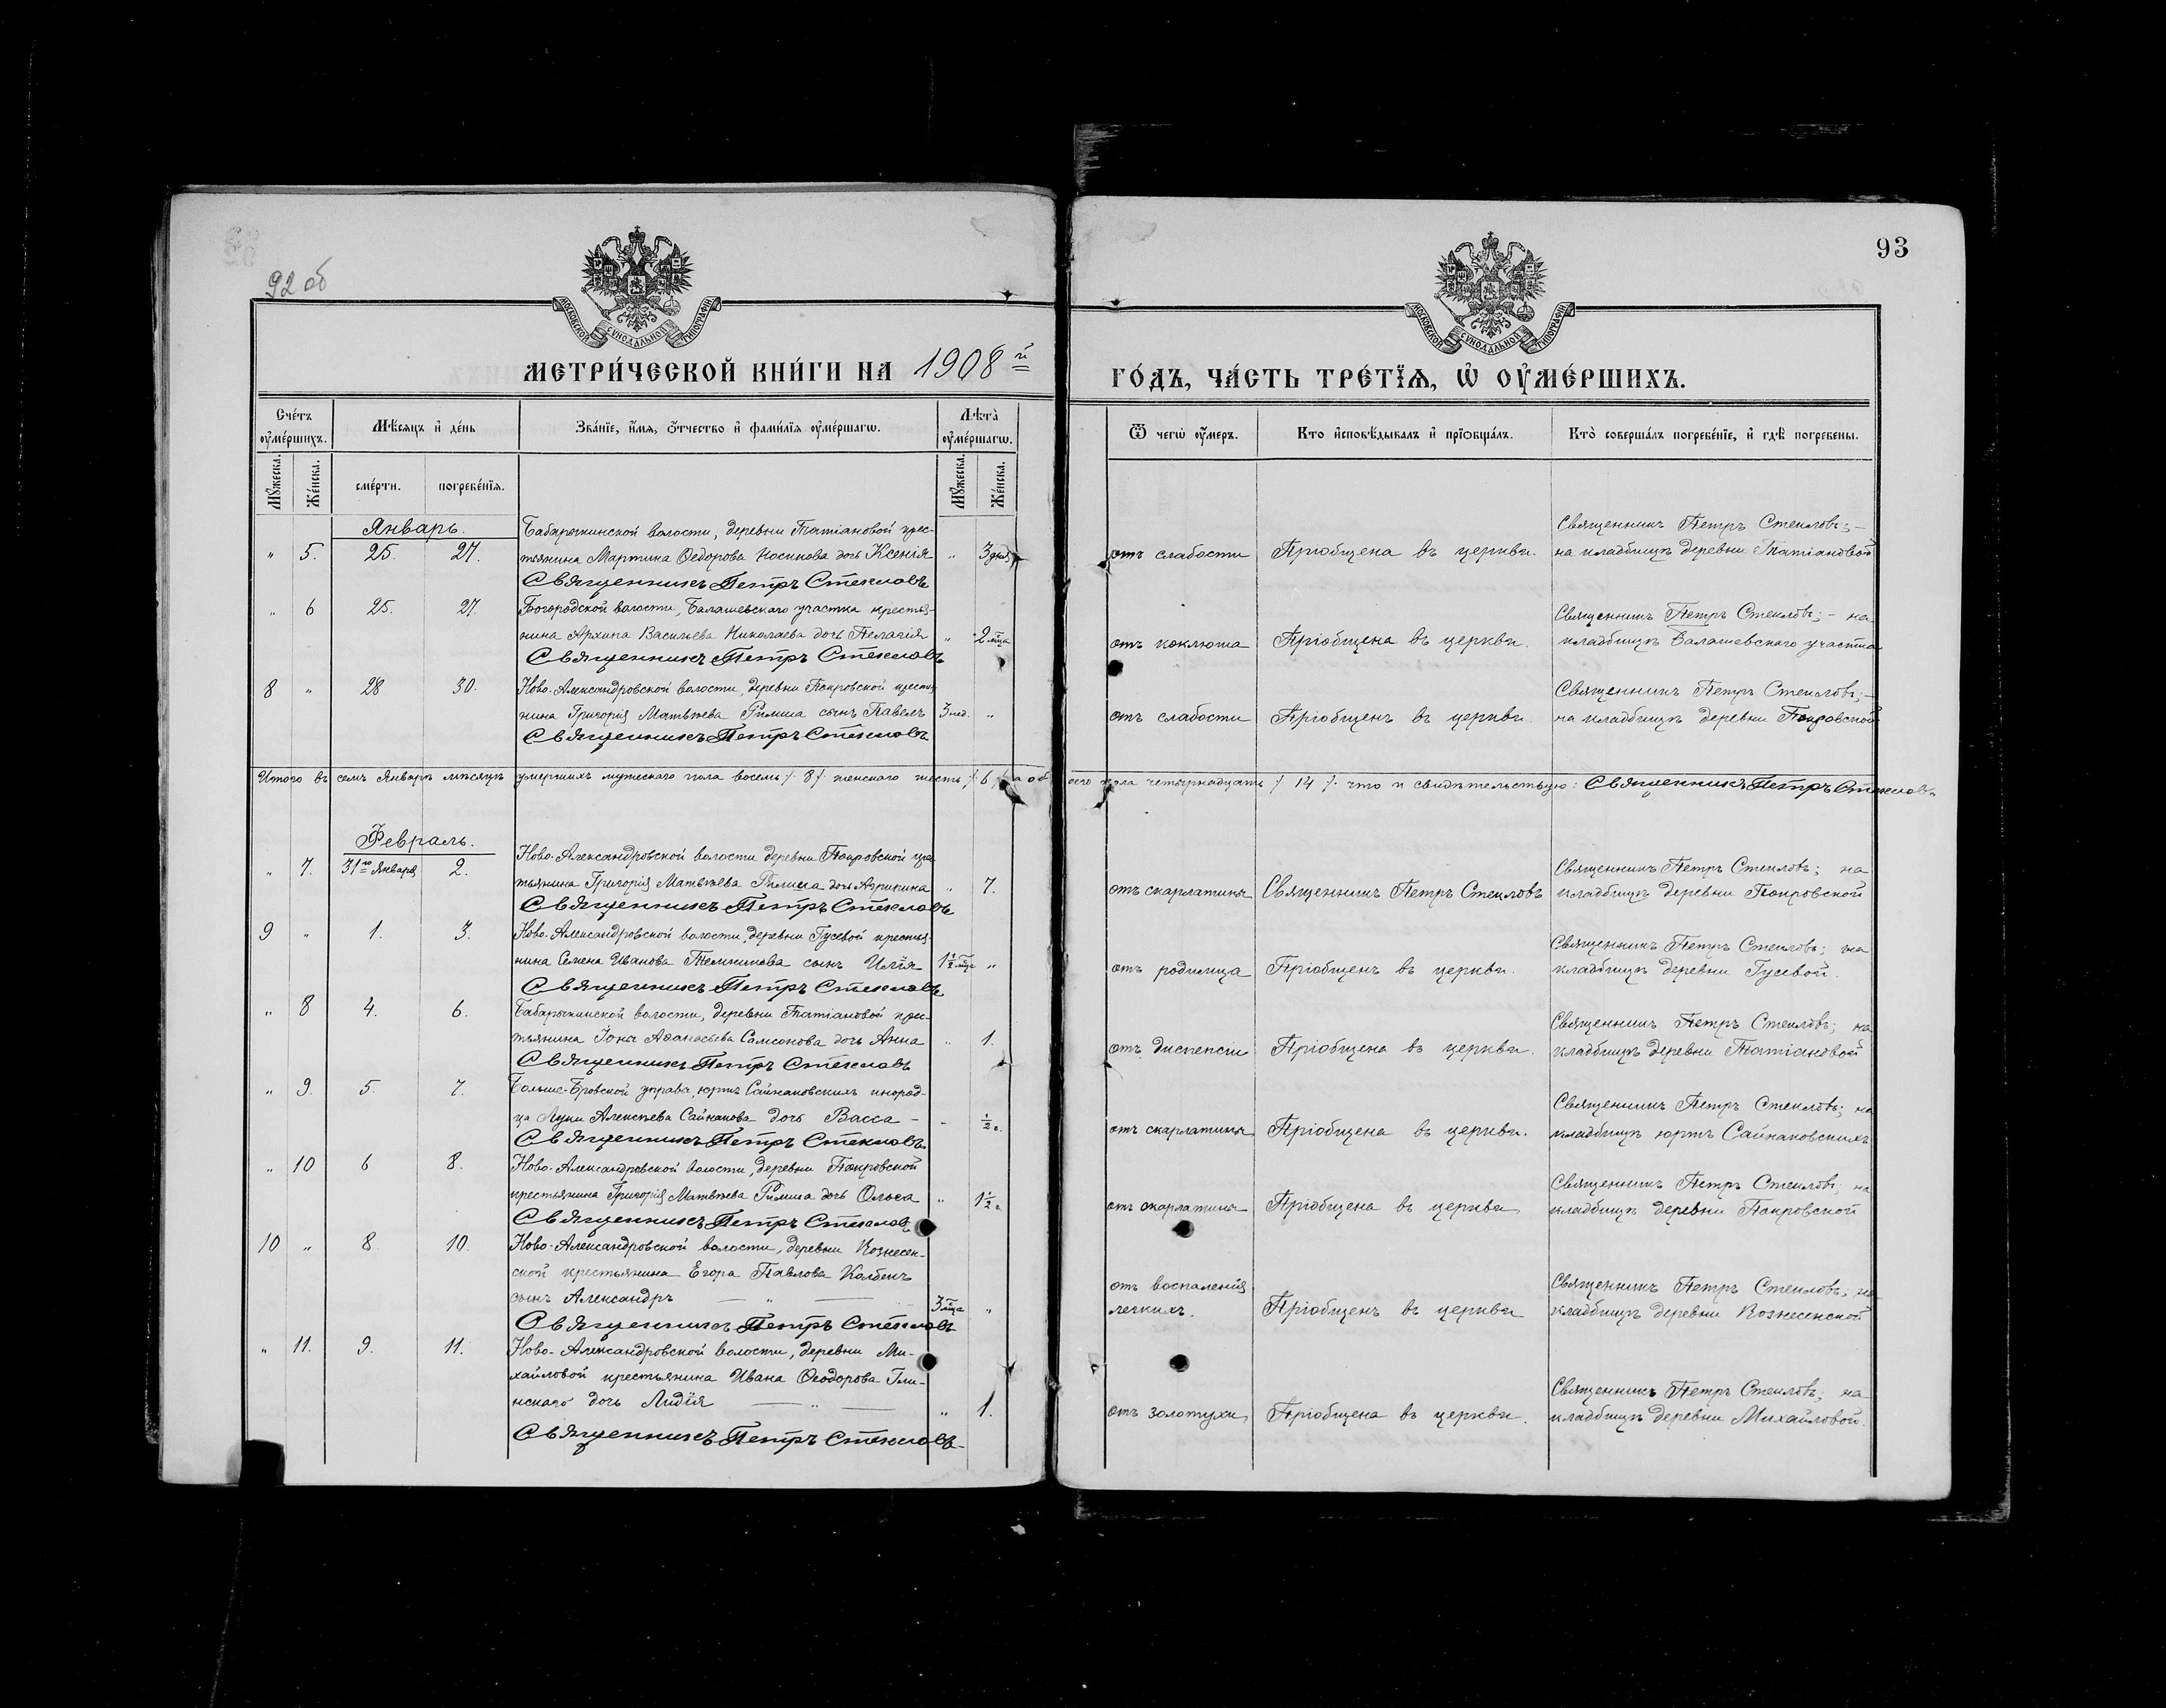 92 об
93
МОСКОВСКОЙ СѴНОДАЛЬНОЙ ТИПОГРАФІИ
МОСКОВСКОЙ СѴНОДАЛЬНОЙ ТИПОГРАФІИ
МЕТРИ́ЧЕСКОЙ КНИ́ГИ НА 1908й
ГО́ДЪ, ЧА́СТЬ ТРЕ́ТЇѦ, Ѡ҆ ОУ҆МЕ́РШИХЪ.
Сче́тъ оу҆ме́ршихъ.
Мѣ́сяцъ и҆ де́нь
Зва́нїе, и҆́мѧ, ѻ҆́тчество и҆ фами́лїѧ оу҆ме́ршагѡ.
Лѣ̑та̀ оу҆ме́ршагѡ.
Ѿ чегѡ̀ оу҆́меръ.
Кто̀ и҆сповѣ́дывалъ и҆ прїѡбща́лъ.
Кто̀ соверша́лъ погребе́нїе, и҆ гдѣ̀ погребены̀.
Мꙋ́жеска.
Же́нска.
сме́рти.
погребе́нїѧ.
Мꙋ́жеска.
Же́нска.
Январь.
Бабарыкинской волости, деревни Татіановой крес-
" 5. 25. 27. тьянина Мартина Ѳедорова Носикова дочь Ксенія " 3 дня
Священникъ Петръ Стекловъ
отъ слабости Пріобщена въ церкви.
Священникъ Петръ Стекловъ; –
на кладбищѣ деревни Татіановой
" 6 25. 27. Богородской волости, Балашевскаго участка крестья-
нина Архипа Васильева Николаева дочь Пелагія " 2 мца
Священникъ Петръ Стекловъ
отъ коклюша Пріобщена въ церкви.
Священникъ Петръ Стекловъ; – на
кладбищѣ Балашевскаго участка
8 " 28 30. Ново-Александровской волости, деревни Покровской кресть-
нина Григорія Матвѣева Римша сынъ Павелъ 3 нед. "
Священникъ Петръ Стекловъ
отъ слабости Пріобщенъ въ церкви.
Священникъ Петръ Стекловъ; –
на кладбищѣ деревни Покровской
Итого въ семъ Январѣ мѣсяцѣ умершихъ мужескаго пола восемь /. 8 /. женскаго шесть /. 6 /. а обоего пола четырнадцать /. 14 /. что и свидѣтельствую: Священникъ Петръ Стекловъ
Февраль.
Ново-Александровской волости деревни Покровской крес-
" 7. 31го Января 2. тьянина Григорія Матвѣева Римша дочь Агрипина " 7.
Священникъ Петръ Стекловъ
отъ скарлатины Священникъ Петръ Стекловъ
Священникъ Петръ Стекловъ; на
кладбищѣ деревни Покровской
9 " 1. 3. Ново-Александровской волости, деревни Гусевой крестья-
нина Семена Иванова Темникова сынъ Илія 1½ мца "
Священникъ Петръ Стекловъ
отъ родимца Пріобщенъ въ церкви.
Священникъ Петръ Стекловъ; на
кладбищѣ деревни Гусевой.
" 8 4. 6. Бабарыкинской волости, деревни Татіановой крес-
тьянина Іоны Аѳанасьева Самсонова дочь Анна " 1.
Священникъ Петръ Стекловъ
отъ диспепсіи Пріобщена въ церкви.
Священникъ Петръ Стекловъ; на
кладбищѣ деревни Татіановой
" 9. 5. 7. управа, юртъ Сайнаковскихъ инород-
ца Луки Алексѣева Сайнакова дочь Васса – " ½ г.
Священникъ Петръ Стекловъ
отъ скарлатины Пріобщена въ церкви.
Священникъ Петръ Стекловъ; на
кладбищѣ юртъ Сайнаковскихъ
" 10 6 8. Ново-Александровской волости, деревни Покровской
крестьянина Григорія Матвѣева Римша дочь Ольга " 1½ г.
Священникъ Петръ Стекловъ
отъ скарлатины Пріобщена въ церкви
Священникъ Петръ Стекловъ; на
кладбищѣ деревни Покровской
10 " 8. 10. Ново-Александровской волости, деревни Вознесен-
ской крестьянина Егора Павлова Колбенъ
сынъ Александръ — " — 3 мца "
Священникъ Петръ Стекловъ
отъ воспаленія
легкихъ. Пріобщенъ въ церкви
Священникъ Петръ Стекловъ; на
кладбищѣ деревни Вознесенской
" 11. 9. 11. Ново-Александровской волости, деревни Ми-
хайловой крестьянина Ивана Ѳеодорова Гли-
нскаго дочь Лидія — " — " 1.
Священникъ Петръ Стекловъ
отъ золотухи Пріобщена въ церкви.
Священникъ Петръ Стекловъ; на
кладбищѣ деревни Михайловой.